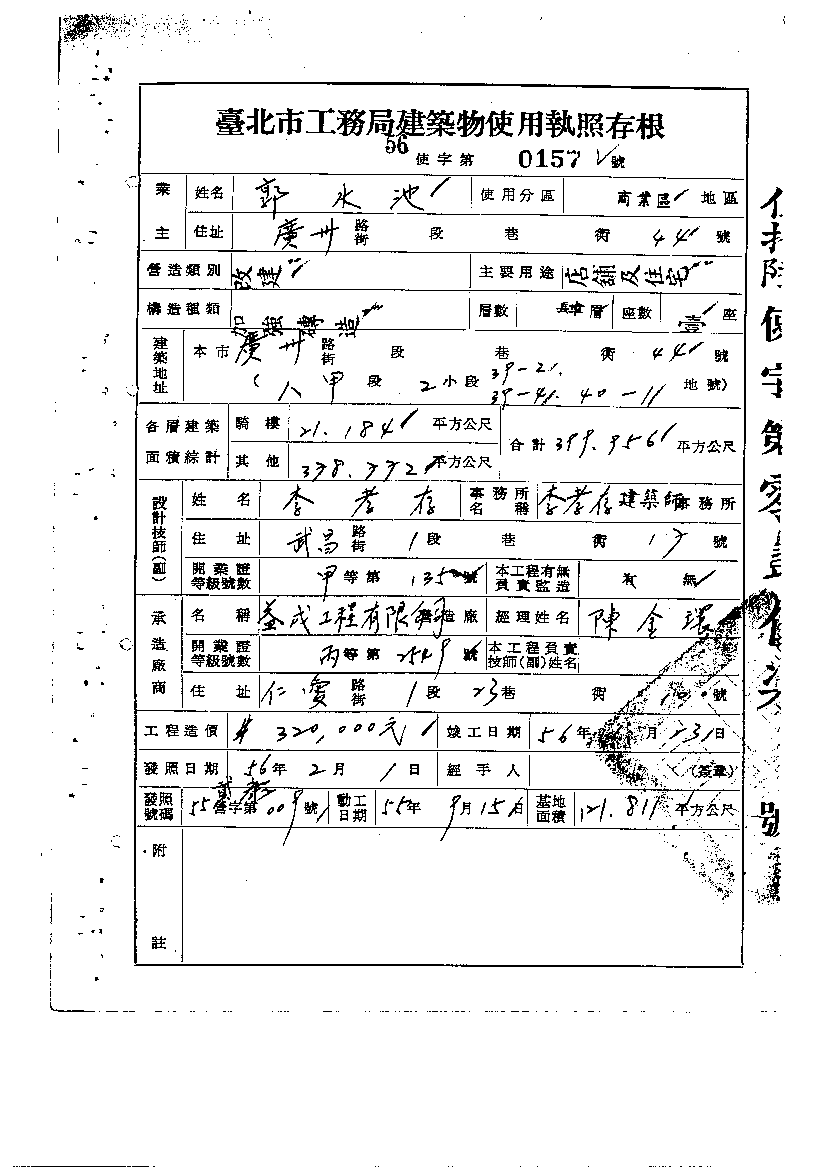 臺北市工務局建築物使用執照存根
56使字第 0157 號
業主 姓名 郭水池 使用分區 商業區 地區
住址 廣州 路街 段 巷 衖 44 號
營造類別 改建 主要用途 店舖及住宅
構造種類 加強磚造 層數 層 座數 壹 座
建築地址 本市 廣州 路街 段 巷 衖 44 號
(八甲段 2 小段 39-21 39-41 40-11 地號)
各層建築面積綜計 騎樓 21.184 平方公尺 合計 399.956 平方公尺
其他 378.772 平方公尺
設計技師(副) 姓名 李孝存 事務所名稱 李孝存建築師事務所
住址 武昌 路街 1 段 巷 衖 17 號
開業證等級號數 甲等第 135 號 本工程有無負責監造 有 無
承造廠商 名稱 益成工程有限 營造廠 經理姓名 陳金環
開業證等級號數 丙等第 2549 號 本工程負責技師(副)姓名
住址 仁愛 路街 1 段 23 巷 衖 號
工程造價 $ 320,000元 竣工日期 56年 月 31日
發照日期 56年 2月 1日 經手人 (簽章)
發照號碼 55營字第 009 號 動工日期 55年 9月 15日 基地面積 121.811 平方公尺
附註